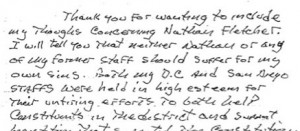 Thank you for wanting to include
my Thoughts Concerning Nathan Fletcher.
I will tell you that neither Nathan or any
of my former staff should suffer for my
own sins. Both my D.C and San Diego
STAFFS were held in high esteem for
Their untiring efforts To both help
Constituents in The district and Summit